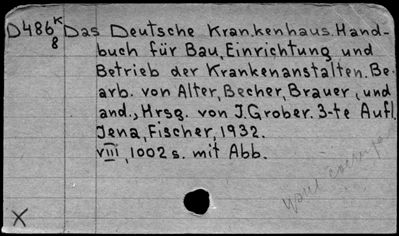 D486 K Das Deutsche Krankenhaus. Hand-
8 buch für Bau, Einrichtung und
Betrieb der Krankenanstalten. Be-
arb. von Alter, Becher, Brauer, und
and., Hrsg. von J. Grober. 3-te Aufl.
Jena, Fischer, 1932.
VIII, 1002 s. mit Abb.
X